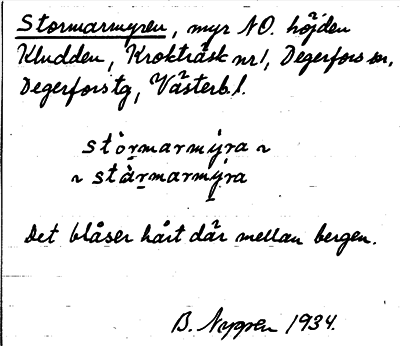 Stormarmyren, myr NO. höjden
Kludden, Krokträsk nr 1, Degerfors sn,
Degerfors tg, Västerb l.
stòrmarmýra ~
~ stàrmarmýra
Det blåser hårt där mellan bergen.
B. Nygren 1934.